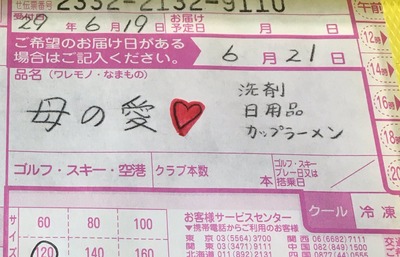 せ伝票番号 2332-2132-9110
受付日 29年6月19日 お届け予定日 月 日
ご希望のお届け日がある場合はご記入ください。 6月21日
品名(ワレモノ・なまもの)
母の愛♥
洗剤
日用品
カップラーメン
ゴルフ・スキー・空港 クラブ本数 本
ゴルフ・スキー
プレー日又は搭乗日
クール 冷凍
サイズ 60 80 100
120 140 160
お客様サービスセンター
▼携帯電話からご利用のお客様
東京 03(5564)3700
関東 03(3471)9111
北海道 011(892)2131
関西 06(6682)7111
午前
12時
14時
16時
18時